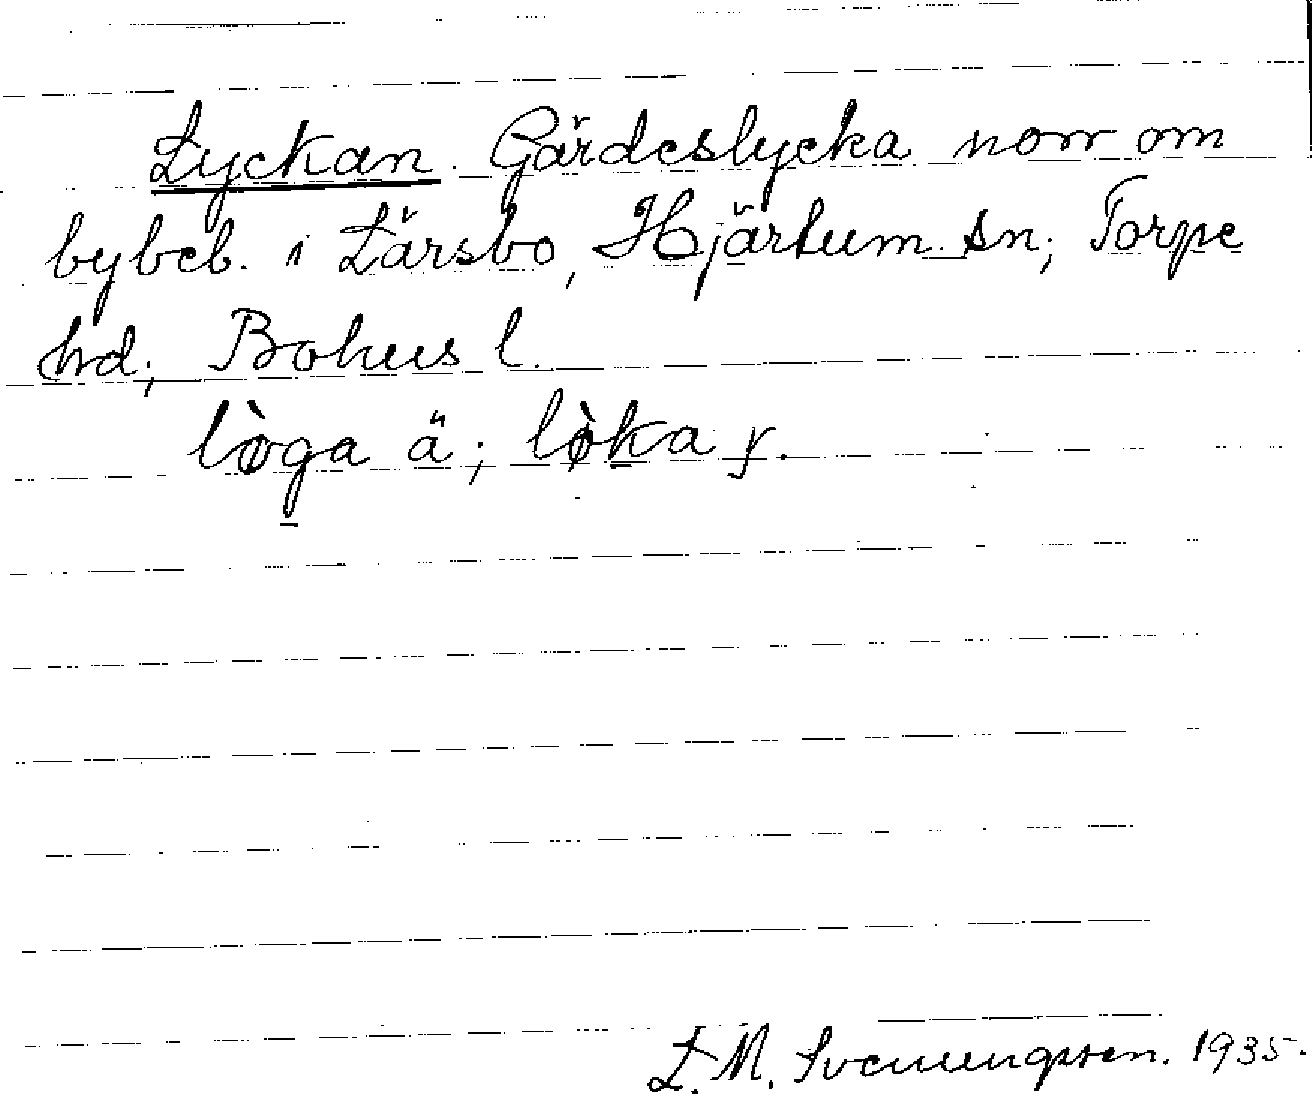 Lyckan. Gärdeslycka norr om
bybeb. i Lärsbo, Hjärtum sn; Torpe
hd; Bohus l.
lø̀ga ä; lø̀ka y.
L. M. Svenungsson. 1935.